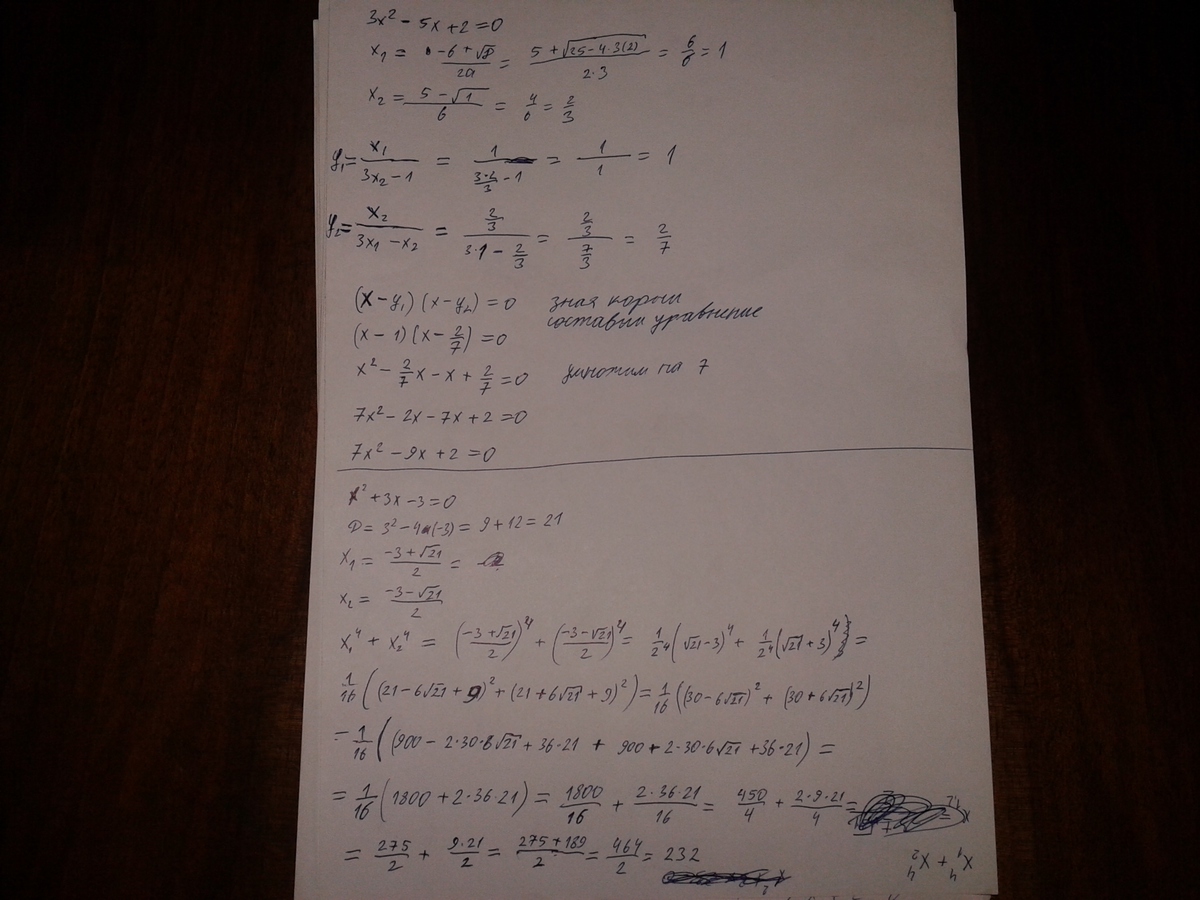 3x² - 5x + 2 = 0
x₁ = -b + √D / 2a = 5 + √(25 - 4·3(2)) / 2·3 = 6/6 = 1
x₂ = 5 - √1 / 6 = 4/6 = 2/3
y₁ = x₁ / (3x₂ - 1) = 1 / (3·2/3 - 1) = 1/1 = 1
y₂ = x₂ / (3x₁ - x₂) = (2/3) / (3·1 - 2/3) = (2/3) / (7/3) = 2/7
(x - y₁)(x - y₂) = 0 зная корни
составим уравнение
(x - 1)(x - 2/7) = 0
x² - 2/7x - x + 2/7 = 0 умножим на 7
7x² - 2x - 7x + 2 = 0
7x² - 9x + 2 = 0
x² + 3x - 3 = 0
D = 3² - 4·(-3) = 9 + 12 = 21
x₁ = (-3 + √21) / 2 =
x₂ = (-3 - √21) / 2
x₁⁴ + x₂⁴ = ((-3 + √21)/2)⁴ + ((-3 - √21)/2)⁴ = 1/2⁴(√21 - 3)⁴ + 1/2⁴(√21 + 3)⁴ =
1/16((21 - 6√21 + 9)² + (21 + 6√21 + 9)²) = 1/16((30 - 6√21)² + (30 + 6√21)²)
= 1/16((900 - 2·30·6√21 + 36·21 + 900 + 2·30·6√21 + 36·21) =
= 1/16(1800 + 2·36·21) = 1800/16 + 2·36·21/16 = 450/4 + 2·9·21/4 =
= 275/2 + 9·21/2 = (275 + 189)/2 = 464/2 = 232
x₁⁴ + x₂⁴